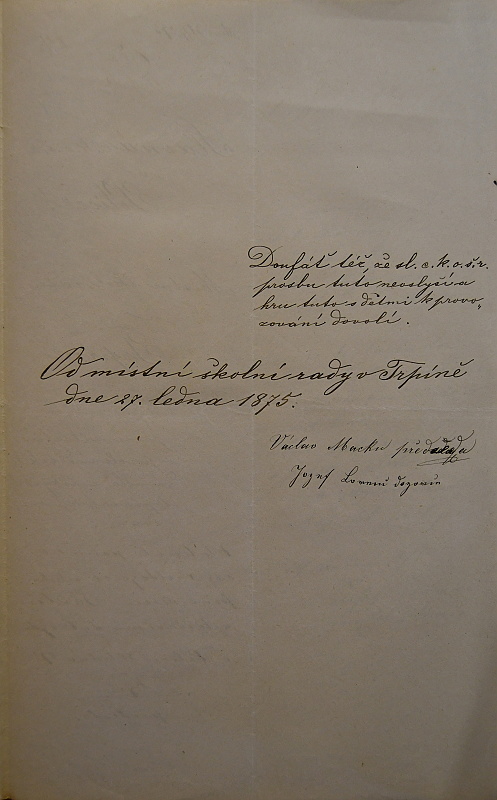 Doufáť též, že sl. c. k. o. š. r.
prosbu tuto neoslyší a
hru tuto s dětmi k provo-
zování dovolí.
Od místní školní rady v Trpíně
dne 27. ledna 1875.
Václav Macků předseda
Jozef dozorce